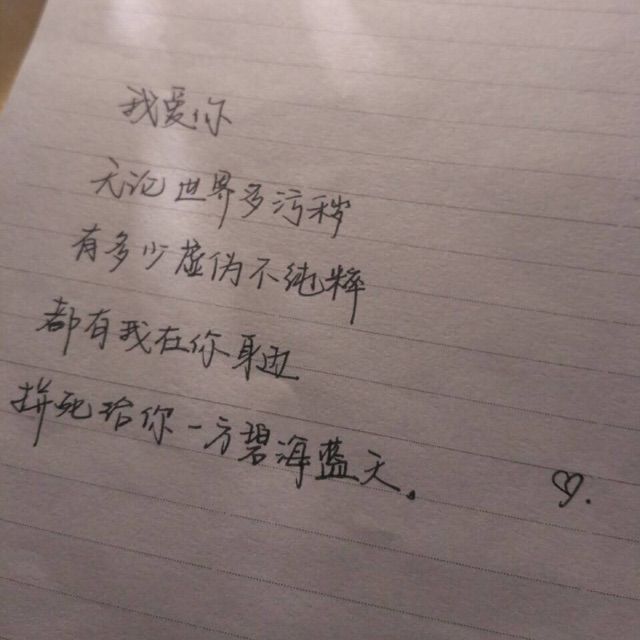 我爱你
无论世界多污秽
有多少虚伪不纯粹
都有我在你身边
拼死给你一方碧海蓝天。
♡.